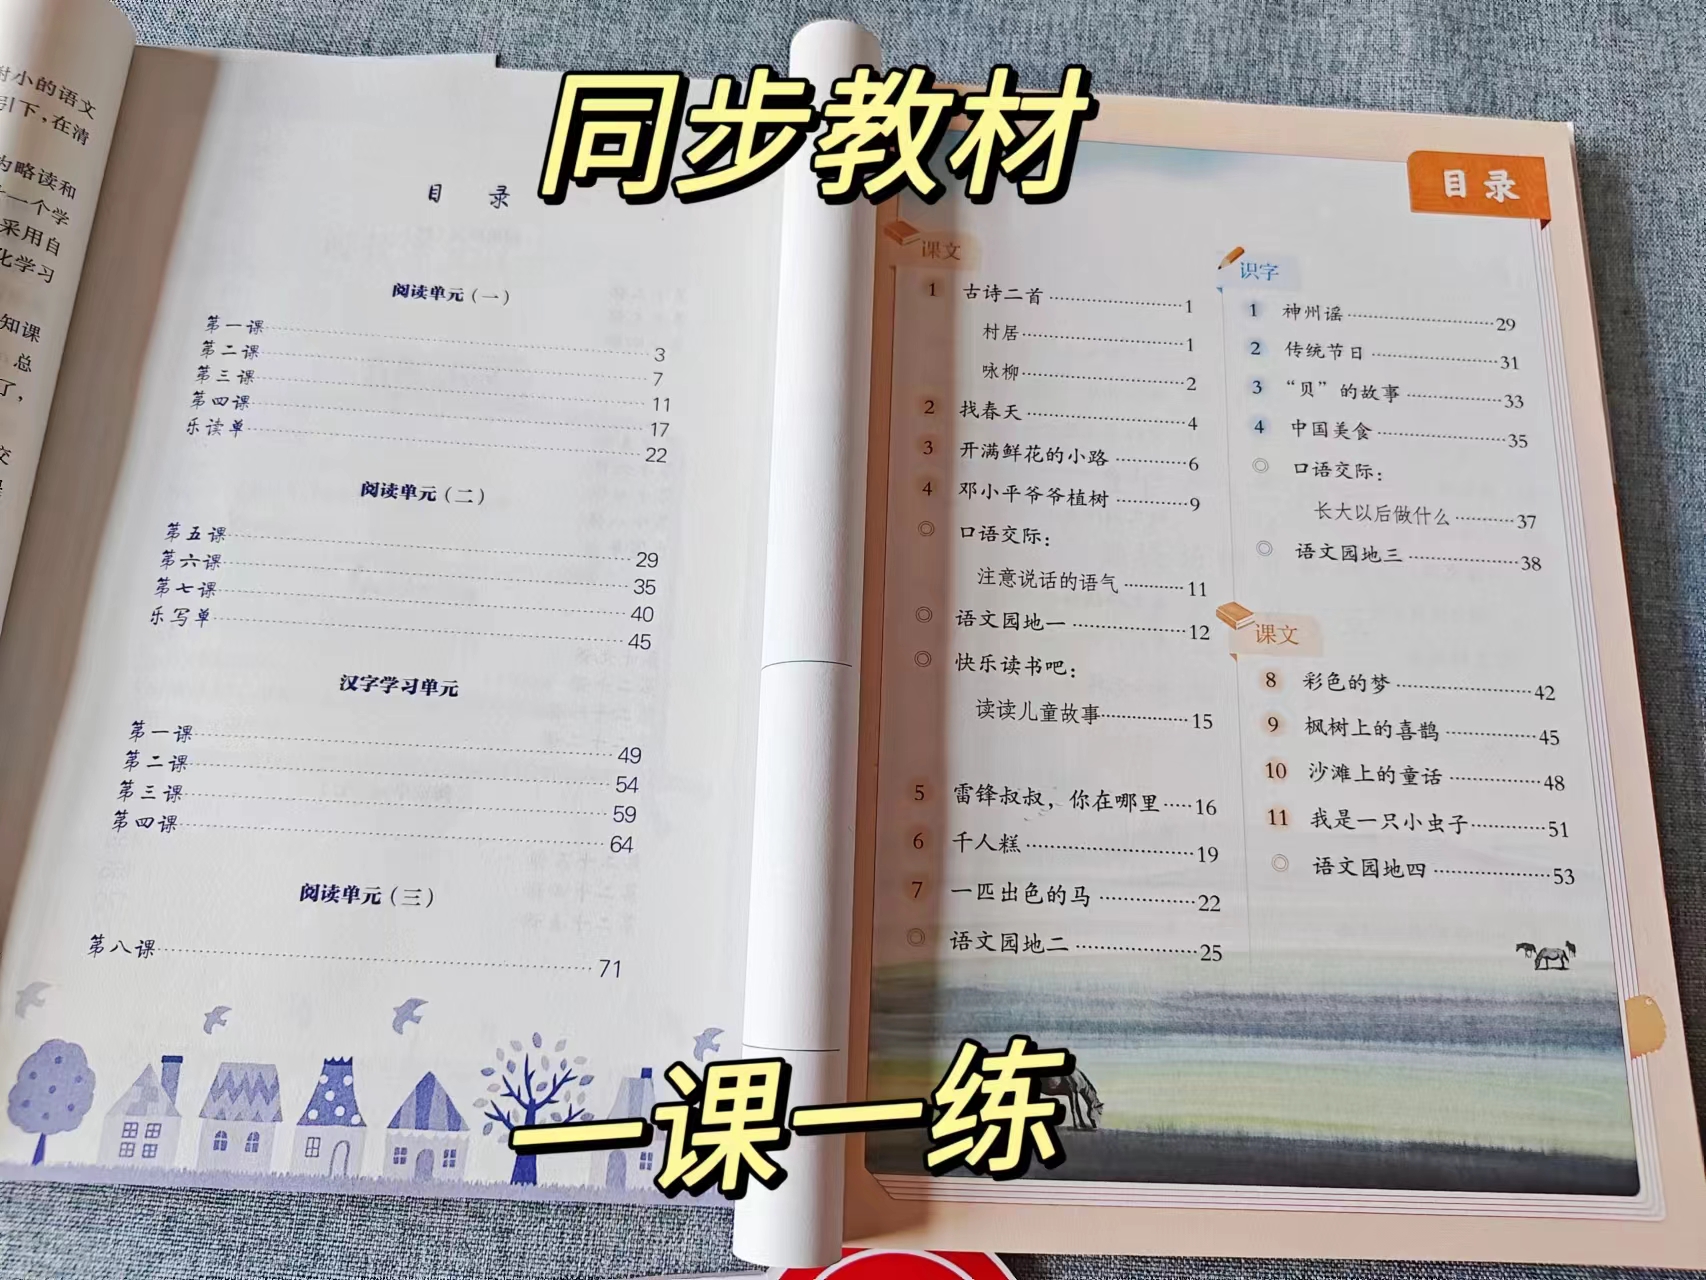 同步教材
附小的语文
引下，在清
为略读和
十一个学
采用自
化学习
知课
总
了，
目 录
阅读单元（一）
第一课 3
第二课 7
第三课 11
第四课 17
乐读单 22
阅读单元（二）
第五课 29
第六课 35
第七课 40
乐写单 45
汉字学习单元
第一课 49
第二课 54
第三课 59
第四课 64
阅读单元（三）
第八课 71
目录
课文
1 古诗二首 1
村居 1
咏柳 2
2 找春天 4
3 开满鲜花的小路 6
4 邓小平爷爷植树 9
◎ 口语交际：
注意说话的语气 11
◎ 语文园地一 12
◎ 快乐读书吧：
读读儿童故事 15
5 雷锋叔叔，你在哪里 16
6 千人糕 19
7 一匹出色的马 22
◎ 语文园地二 25
识字
1 神州谣 29
2 传统节日 31
3 “贝”的故事 33
4 中国美食 35
◎ 口语交际：
长大以后做什么 37
◎ 语文园地三 38
课文
8 彩色的梦 42
9 枫树上的喜鹊 45
10 沙滩上的童话 48
11 我是一只小虫子 51
◎ 语文园地四 53
一课一练